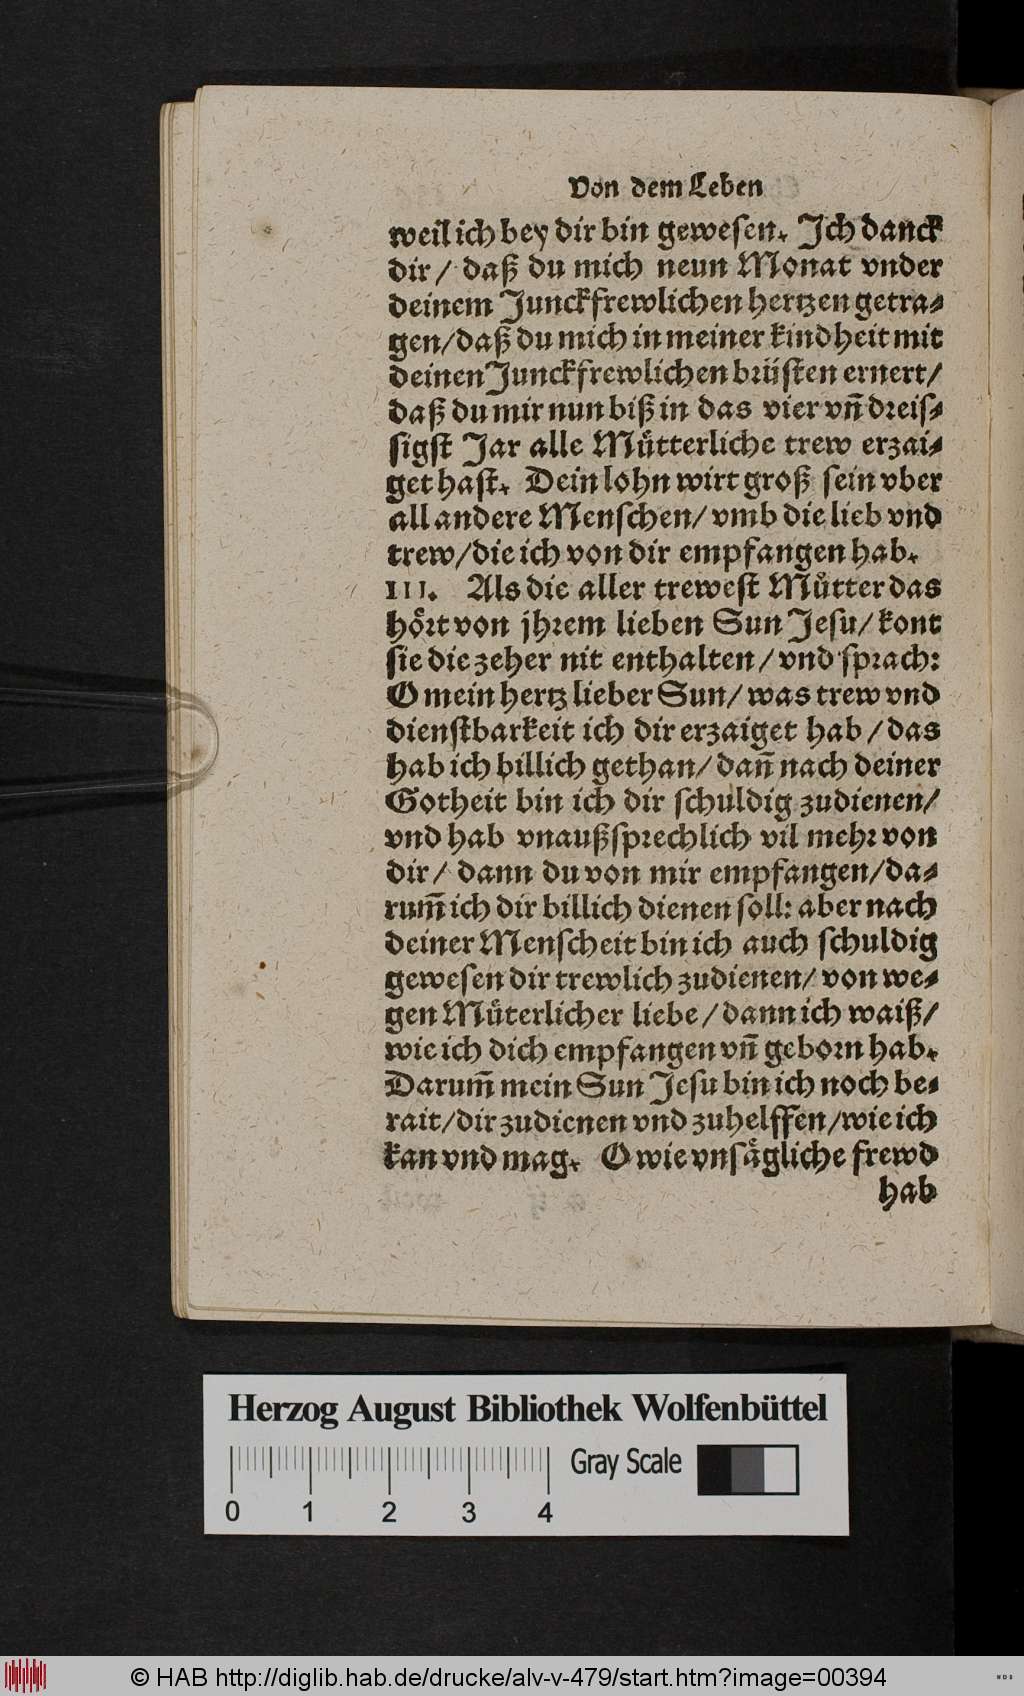 Von dem Leben
weil ich bey dir bin gewesen. Jch danck
dir / daß du mich neun Monat vnder
deinem Junckfrewlichen hertzen getra⸗
gen/daß du mich in meiner kindheit mit
deinen Junckfrewlichen brüsten ernert/
daß du mir nun biß in das vier vñ dreis⸗
sigst Jar alle Mütterliche trew erzai⸗
get hast. Dein lohn wirt groß sein vber
all andere Menschen/ vmb die lieb vnd
trew/die ich von dir empfangen hab.
III. Als die aller trewest Můtter das
hört von jhrem lieben Sun Jesu/ kont
sie die zeher nit enthalten / vnd sprach:
O mein hertz lieber Sun/ was trew vnd
dienstbarkeit ich dir erzaiget hab / das
hab ich billich gethan/ dañ nach deiner
Gotheit bin ich dir schuldig zudienen/
vnd hab vnaußsprechlich vil mehr von
dir / dann du von mir empfangen/da⸗
rum̃ ich dir billich dienen soll: aber nach
deiner Menscheit bin ich auch schuldig
gewesen dir trewlich zudienen/ von we⸗
gen Müterlicher liebe / dann ich waiß/
wie ich dich empfangen vñ geborn hab.
Darum̃ mein Sun Jesu bin ich noch be⸗
rait/dir zudienen vnd zuhelffen/wie ich
kan vnd mag. O wie vnsägliche frewd
hab
Herzog August Bibliothek Wolfenbüttel
Gray Scale
0 1 2 3 4
© HAB http://diglib.hab.de/drucke/alv-v-479/start.htm?image=00394